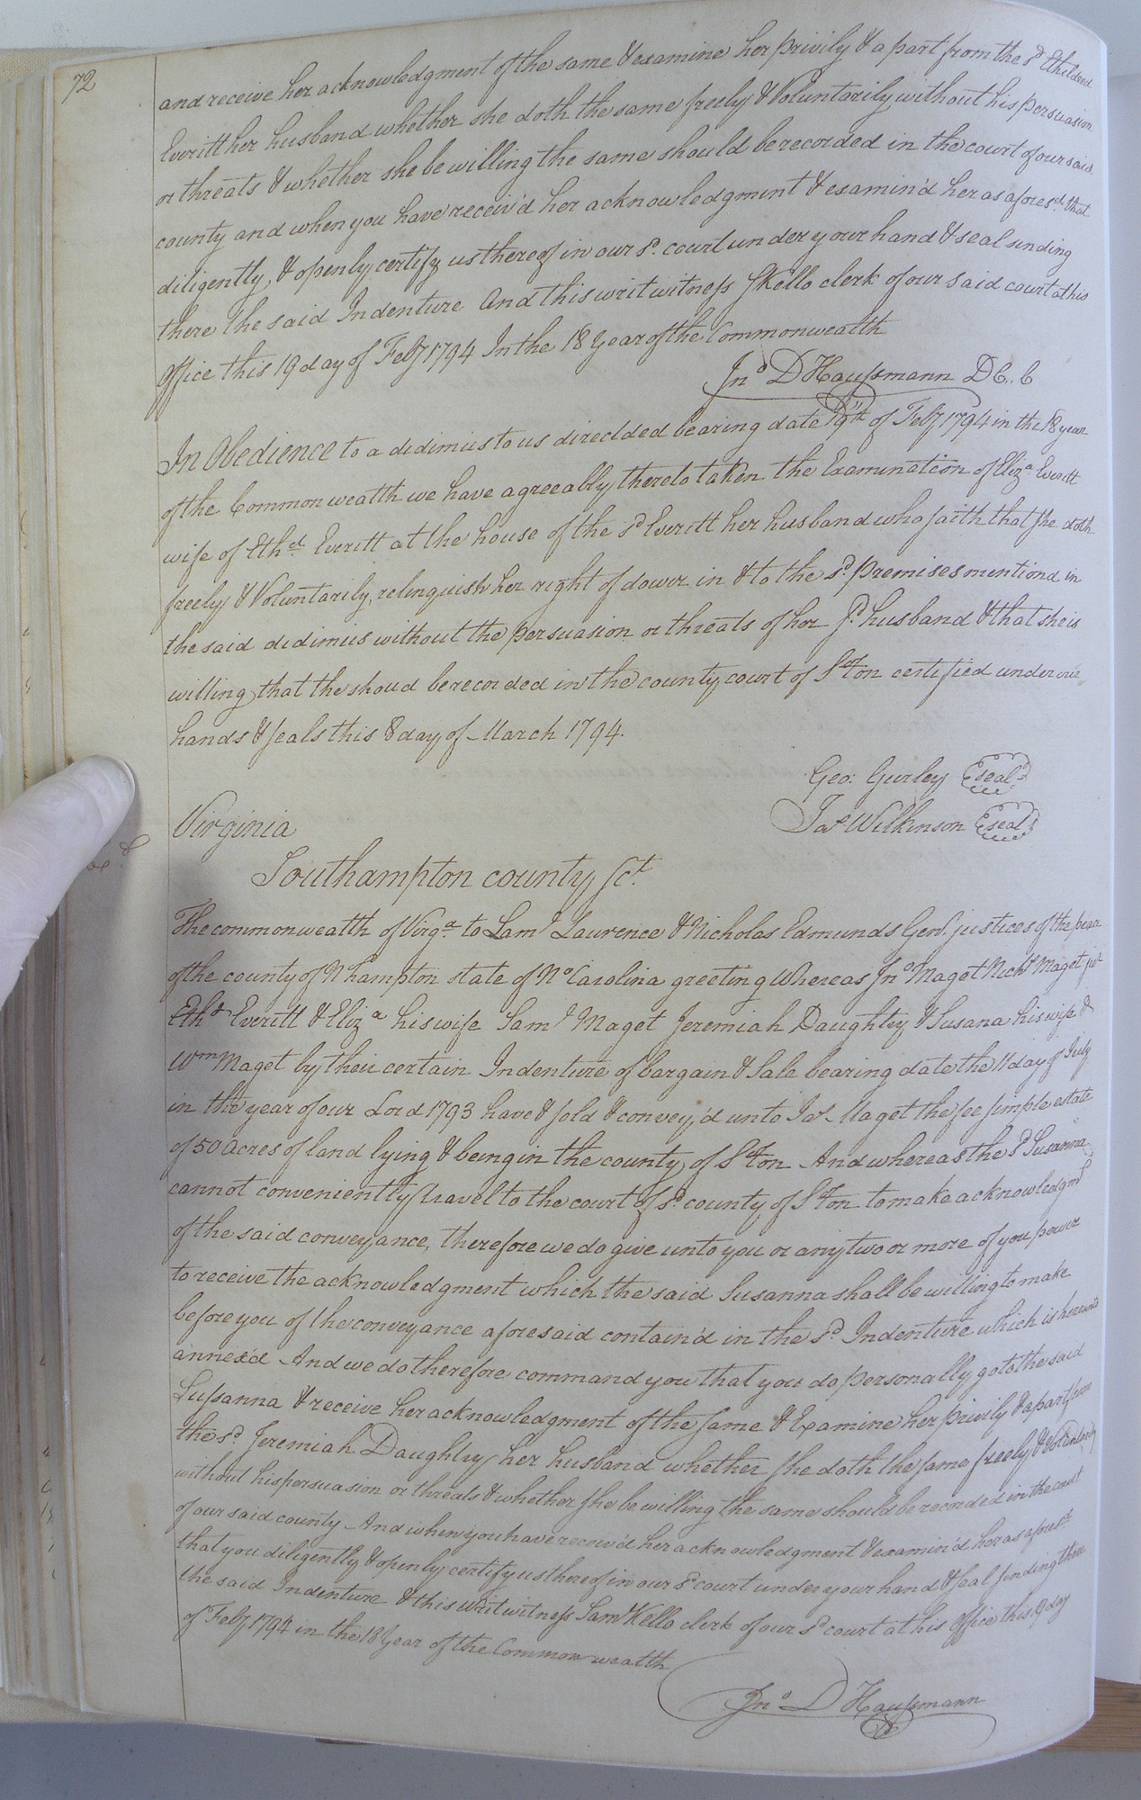 72
and receive her acknowledgment of the same & examine her privily & a part from the sd. Etheldred
Everitt her husband whether she doth the same freely & Voluntarily without his persuasion
or threats & whether she be willing the same should be recorded in the court of our said
county and when you have receiv'd her acknowledgment & examin'd her as aforesd. that
diligently, & openly certify us thereof in our sd. court under your hand & seal sending
there the said Indenture And this writ witness S Kello clerk of our said court at his
office this 19 day of Feby 1794 In the 18 year of the Commonwealth
Jno D Haussmann D C. C
In Obedience to a didimus to us directded bearing date 19th of Feby 1794 in the 18 year
of the Commonwealth we have agreeably thereto taken the Examination of Eliza Everitt
wife of Ethd Everitt at the house of the sd Everitt her husband who saith that she doth
freely & Voluntarily, relinquish her right of dower in & to the sd. premises mentiond in
the said didimus without the persuasion or threats of her sd. husband & that she is
willing that the shoud be recorded in the county court of S:ton certified under our
hands & seals this 8 day of March 1794.
Geo: Gurley seal
Jas Wilkinson seal
Virginia
Southampton county Sct.
The commonwealth of Virga to Saml Laurence & Nicholas Edmunds Gent. justices of the peace
of the county of Nhampton state of No Carolina greeting Whereas Jno Maget Nichs Maget jur
Ethd Everitt & Eliza his wife Saml Maget Jeremiah Daughtry & Susana his wife &
Wm Maget by their certain Indenture of bargain & Sale bearing date the 11 day of July
in the year of our Lord 1793 have & sold & convey'd unto Jas Maget the fee simple estate
of 50 acres of land lying & being in the county of S:ton And whereas the sd Susanna
cannot conveniently travel to the court of sd. county of S:ton to make acknowledgmt
of the said conveyance, therefore we do give unto you or any two or more of you power
to receive the acknowledgment which the said Susanna shall be willing to make
before you of the conveyance aforesaid contain'd in the sd. Indenture which is hereunto
annex'd And we do therefore command you that you do personally go to the said
Sussanna & receive her acknowledgment of the same & Examine her privily & apart from
the sd. Jeremiah Daughtry her husband whether she doth the same freely & Voluntarily
without his persuasion or threats & whether she be willing the same should be recorded in the court
of our said county And when you have receiv'd her acknowledgment & examin'd her as aforesd
that you diligently & openly certify us thereof in our sd court under your hand & seal sending then
the said Indenture & this writ witness Saml Kello clerk of our sd court at his office this 19 day
of Feby 1794 in the 18 Year of the Commonwealth
Jno D Haussmann